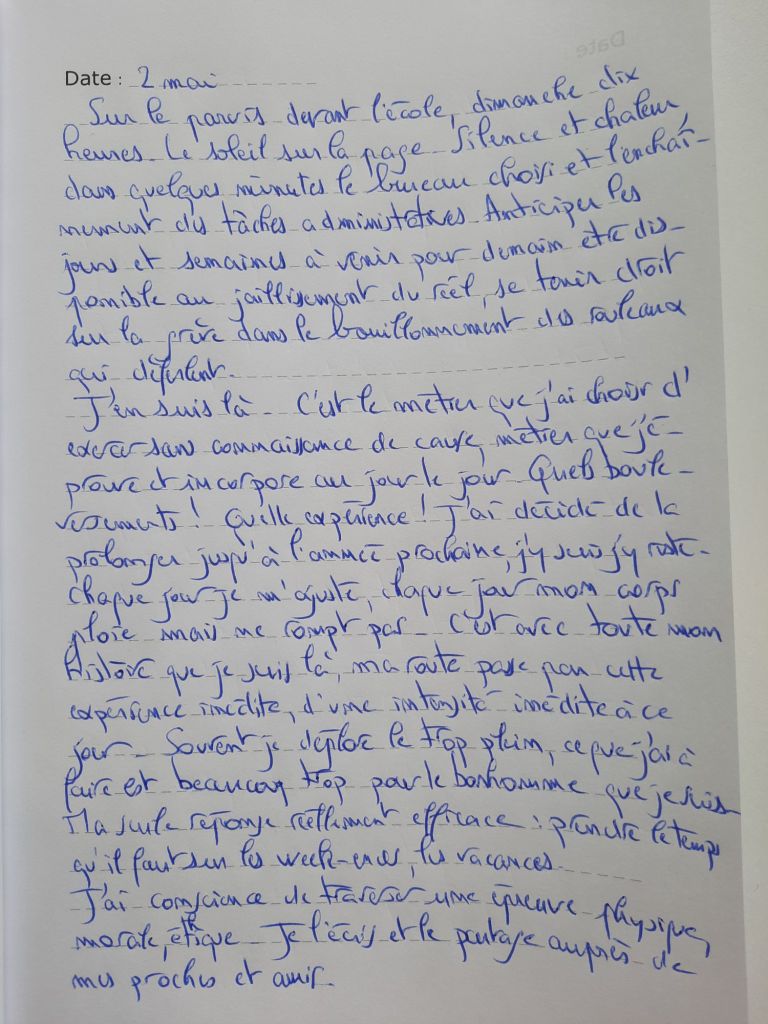 Date
Date : 2 mai
Sur le parvis devant l'école, dimanche dix
heures. Le soleil sur la page. Silence et chaleur,
dans quelques minutes le bureau choisi et l'enchaî-
nement des tâches administratives. Anticiper les
jours et semaines à venir pour demain être dis-
ponible au jaillissement du réel, se tenir droit
sur la grève dans le bouillonnement des rouleaux
qui déferlent.
J'en suis là. C'est le métier que j'ai choisi d'
exercer sans connaissance de cause, métier que j'é-
prouve et incorpore au jour le jour. Quels boule-
versements ! Quelle expérience ! J'ai décidé de la
prolonger jusqu'à l'année prochaine, j'y suis j'y reste.
Chaque jour je m'ajuste, chaque jour mon corps
ploie mais ne rompt pas. C'est avec toute mon
histoire que je suis là, ma route passe par cette
expérience inédite, d'une intensité inédite à ce
jour. Souvent je déplore le trop plein, ce que j'ai à
faire est beaucoup trop pour le bonhomme que je suis.
Ma seule réponse réellement efficace : prendre le temps
qu'il faut sur les week-ends, les vacances.
J'ai conscience de traverser une épreuve physique,
morale, éthique. Je l'écris et le partage auprès de
mes proches et amis.